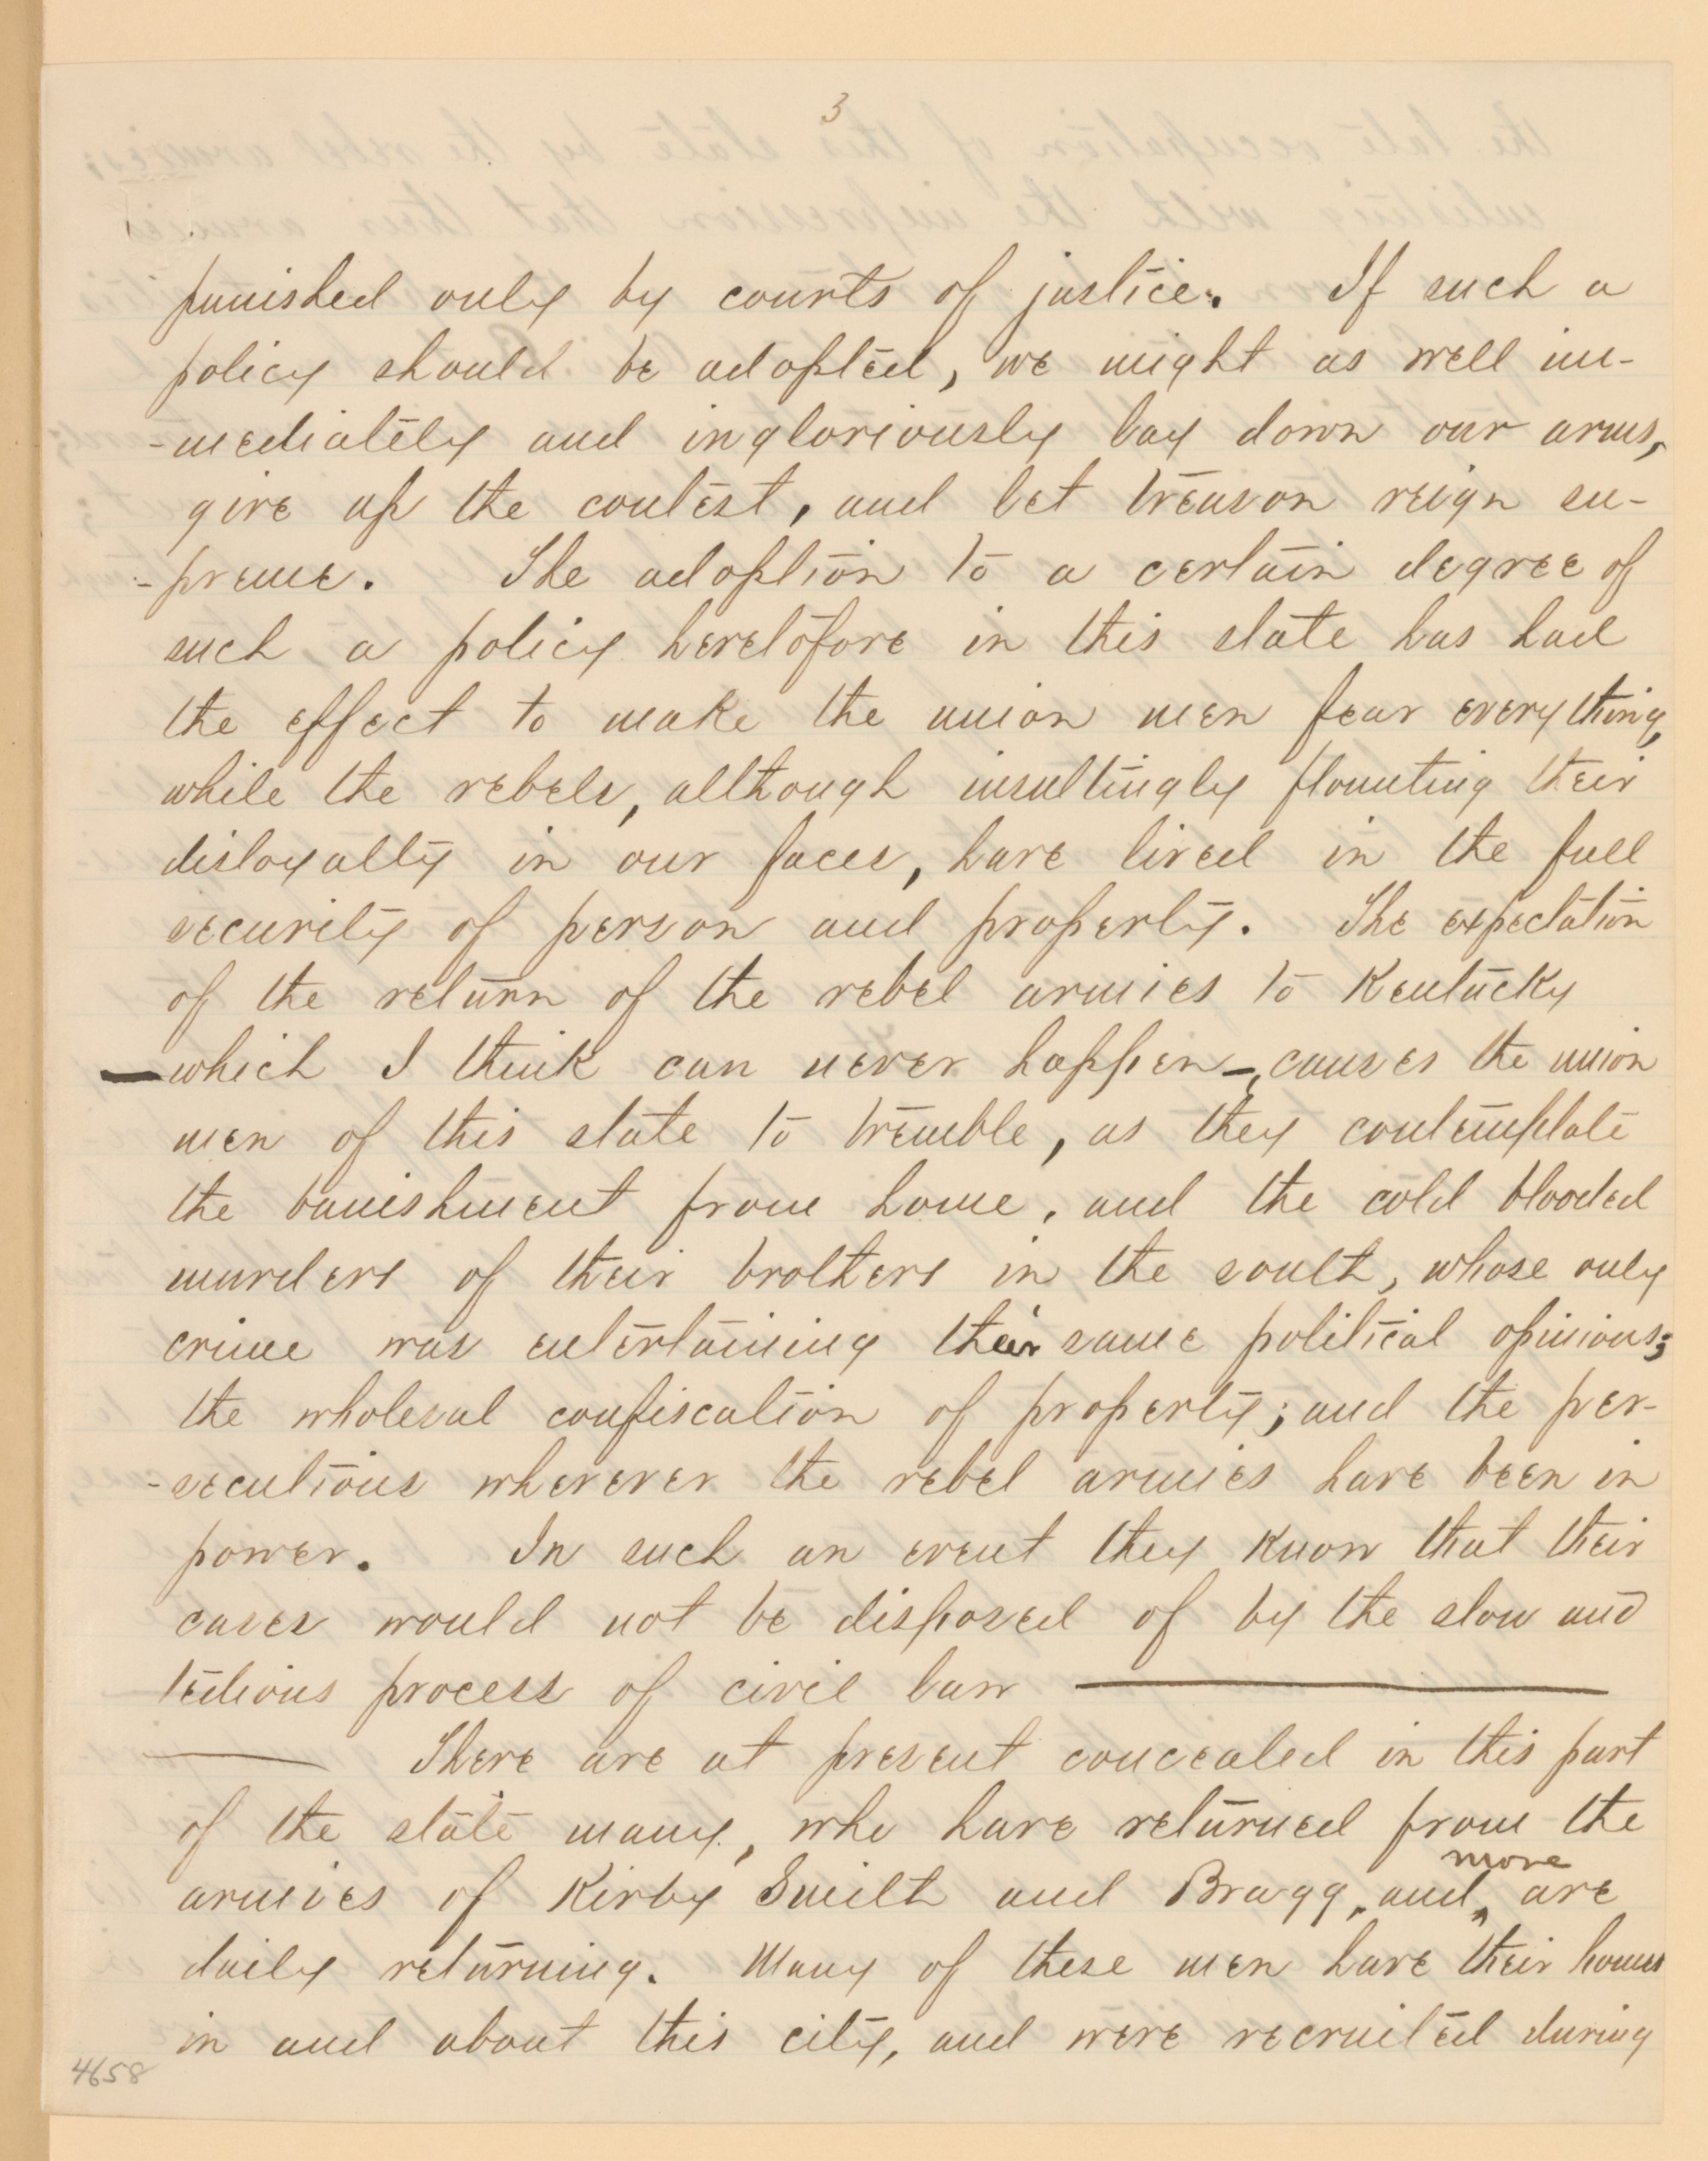 3
punished only by courts of justice. If such a
policy should be adopted, we might as well im-
-mediately and ingloriously lay down our arms,
give up the contest, and let treason reign su-
-preme. The adoption to a certain degree of
such a policy heretofore in this state has had
the effect to make the union men fear everything,
while the rebels, although insultingly flaunting their
disloyalty in our faces, have lived in the full
security of person and property. The expectation
of the return of the rebel armies to Kentucky
—which I think can never happen—, causes the union
men of this state to tremble, as they contemplate
the banishment from home, and the cold blooded
murders of their brothers in the south, whose only
crime was entertaining their same political opinions;
the wholesal confiscation of property; and the per-
-secutions wherever the rebel armies have been in
power. In such an event they know that their
cases would not be disposed of by the slow and
tedious process of civil law ———
——— There are at present concealed in this part
of the state many, who have returned from the
more
armies of Kirby Smith and Bragg, and ^ are
daily returning. Many of these men have their homes
in and about this city, and were recruited during
4658